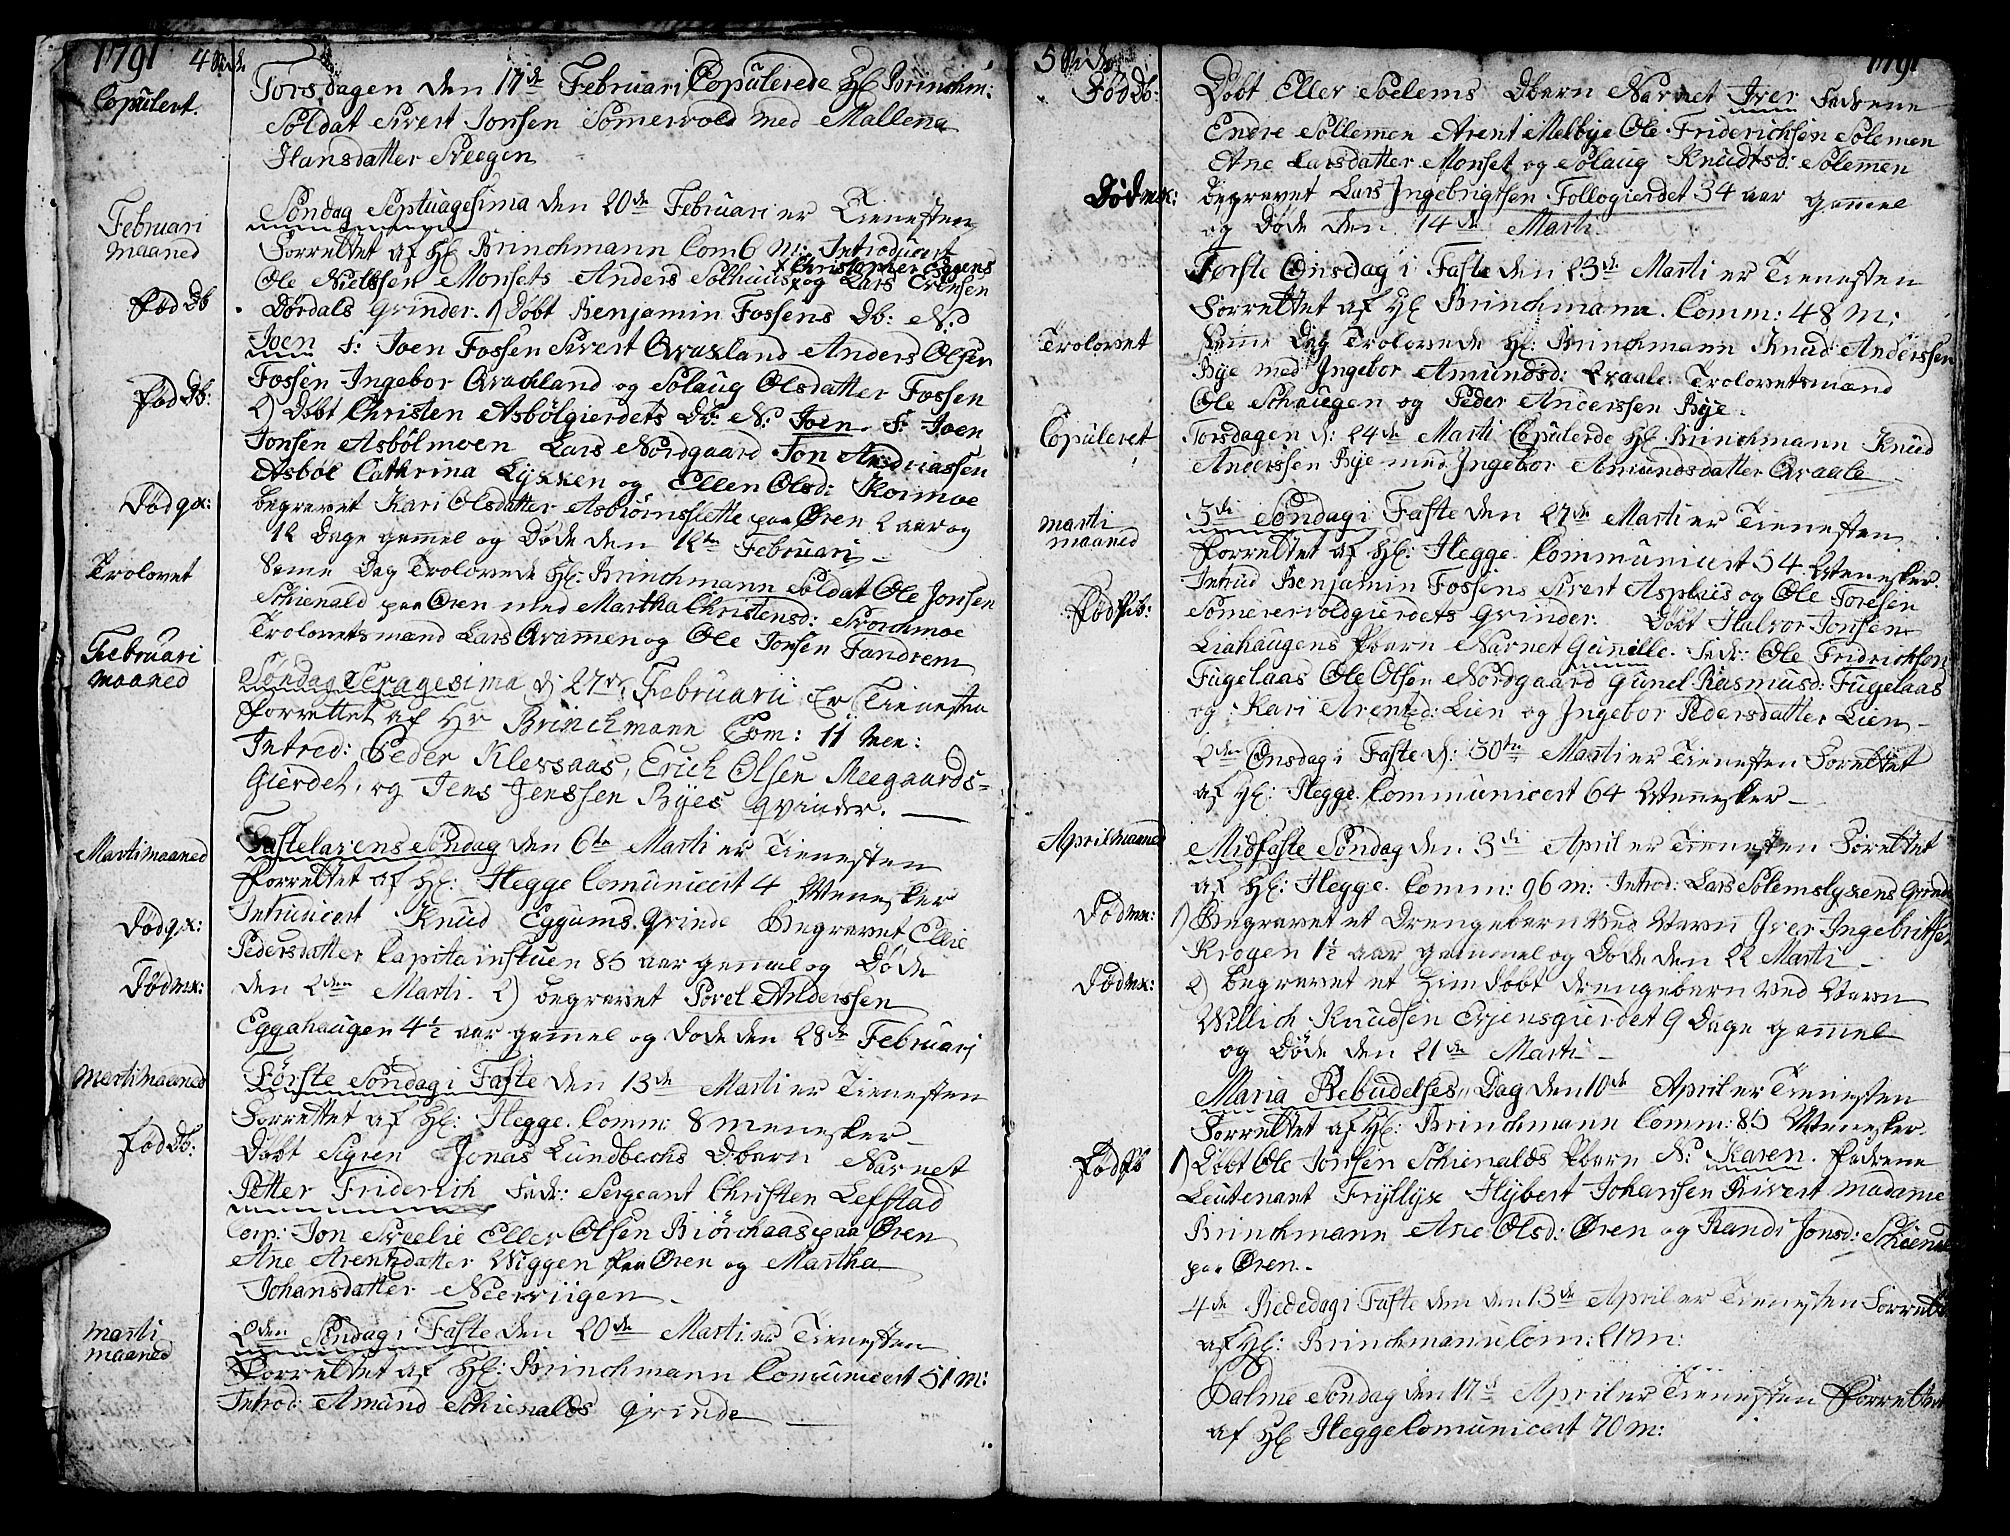 1791 4 Side
Copulert.
Torsdagen den 17de Februari Copulerede Hl Brinchm:
Soldat Sivert Jonsen Somervold med Mallena
Hansdatter Sveegen
Februari
maaned
Søndag Septuagesima den 20de Februari er Tienesten
Forrettet af Hl Brinchmann Com 6 M: Introducert
Ole Nielssen Monsets Anders Solhuus og Lars Evensen
x Christopher Eggens
Død Dørdals Qvinder. 1) Døbt Benjamin Fossens Db: N:
Fød Db
Joen F: Joen Fossen Sivert Qvakland Anders Olsen
Fossen Ingebor Qvakland og Solaug Olsdatter Fossen
Fød Db:
2) Døbt Christen Asbølgierdets Db: N: Joen. F: Joen
Jonsen Asbølmoen Lars Nordgaard Jon Andriassen
Asbøl Cathrina Lykken og Ellen Olsd: Kormoe
Død qx:
begravet Kari Olsdatter Asbiørnslette paa Øren 2 aar og
12 Dage gammel og Døde den 12te Februari
Trolovet
Same Dag Trolovede Hl: Brinchmann Soldat Ole Jonsen
Schienald paa Øren med Martha Christensd: Storchmoe
Trolovetsmænd Lars Qvammen og Ole Jonsen Fandrem
Februari
maaned
Søndag Sexagesima d: 27de Februarii Er Tienesten
Forrettet af Hr Brinchmann Com: 11 Men:
Introd: Peder Klevsaas, Erich Olsen Meegaards-
Gierdet, og Jens Jenssen Byes Qvinder.
Marti maaned
Fastelavens Søndag den 6te Marti er Tienesten
Forrettet af Hl: Hegge Comunicert 4 Mennesker
Død qx:
Intrudicert Knud Eggums Qvinde Begravet Ellie
Pedersdatter Capitainstuen 85 aar gammel og Døde
Død mx:
den 2den Marti. 2) begravet Povel Anderssen
Eggahaugen 4½ aar gammel og Døde den 28de Februari
Marti maaned
Første Søndag i Faste den 13de Marti er Tienesten
Forrettet af Hl: Hegge. Comm: 8 menesker
Fød Db:
Døbt Sigren Jonas Lundbechs Dbarn Navnet
Petter Friderich Fadr: Sergeant Christen Leffstad
Corp: Jon Sveelie Eller Olsen Biørchaas paa Øren
Ane Arentzdatter Wiggen paa Øren og Martha
Johansdatter Neerviigen
marti
maaned
2den Søndag i Faste den 20de Marti er Tienesten
Forrettet af Hl: Brinchmann Comunicert 51 M:
Introd: Amund Schienalds Qvinde
5 Side 1791
Fød Db:
Døbt Eller Solems Dbarn Navnet Iver Fadrene
Endre Sollemen Arent Melbye Ole Friderichsen Solemen
Ane Larsdatter Monset og Solaug Knudtsd: Solemen
Død mx:
begravet Lars Ingebrigtsen Follogierdet 34 aar gammel
og Døde den 14de Marti.
Første Onsdag i Faste den 23de Marti er Tienesten
Forrettet af Hl Brinchmann. Comm: 48 M:
Trolovet
Samme Dag Trolovede Hl: Brinchmann Knud Anderssen
Bye med Ingebor Amundsd: Qvaale Trolovetsmænd
Ole Schaugen og Peder Anderssen Bye.
Copuleret
Torsdagen d: 24de Marti Copulerde Hl Brinchmann Knud
Anderssen Bye med Ingebor Amundsdatter Qvaale
marti
maaned
3die Søndag i Faste den 27de Marti er Tienesten
Forrettet af Hl: Hegge Communicert 54 Menesker.
Introd Benjamin Fossens Sivert Asphus og Ole Toresen
Fød Pb:
Somervoldgierdets Qvinder. Døbt Halvor Jonsen
Liahaugens Pbarn Navnet Gunille. Fadr: Ole Fridrichsen
Fugelaas Ole Olsen Nordgaard Gunel Rasmusd: Fugelaas
og Kari Arentzd: Lien og Ingebor Pedersdatter Lien
2den Onsdag i Faste d: 30te Marti er Tienesten Forrettet
af Hl: Hegge. Communicert 64 Mennesker
April maaned
Midfaste Søndag den 3die April er Tienesten Forrettet
af Hl: Hegge. Comm: 96 M: Introd: Lars Solemslykens Qvinde
Død mx:
1) Begravet et Drengebarn Ved Navn Iver Ingebritsen
Krogen 1½ aar gammel og Døde den 22 Marti
Død mx:
2) begravet et Hiemdøbt Drengebarn Ved Navn
Willich Knudsen Evjensgierdet 9 Dage gammel
og Døde den 21de Marti
Maria Bebudelses Dag den 10de April er Tienesten
Forrettet af Hl: Brinchmann Comm: 85 Menesker
Fød Pb
1) Døbt Ole Jonsen Schienalds Pbarn N: Karen. Fadrene
Leutenant Frylljx Hybert Johansen Sivert Madame
Brinchmann Ane Olsd: Øren og Randi Jonsd: Schienal
paa Øren.
4de Bededag i Faste den den 13de April er Tienesten Forrettet
af Hl: Brinchmann Com: 21 M:
Palme Søndag den 17d April er Tienesten Forrettet
af Hl Hegge Comunicert 70 M: